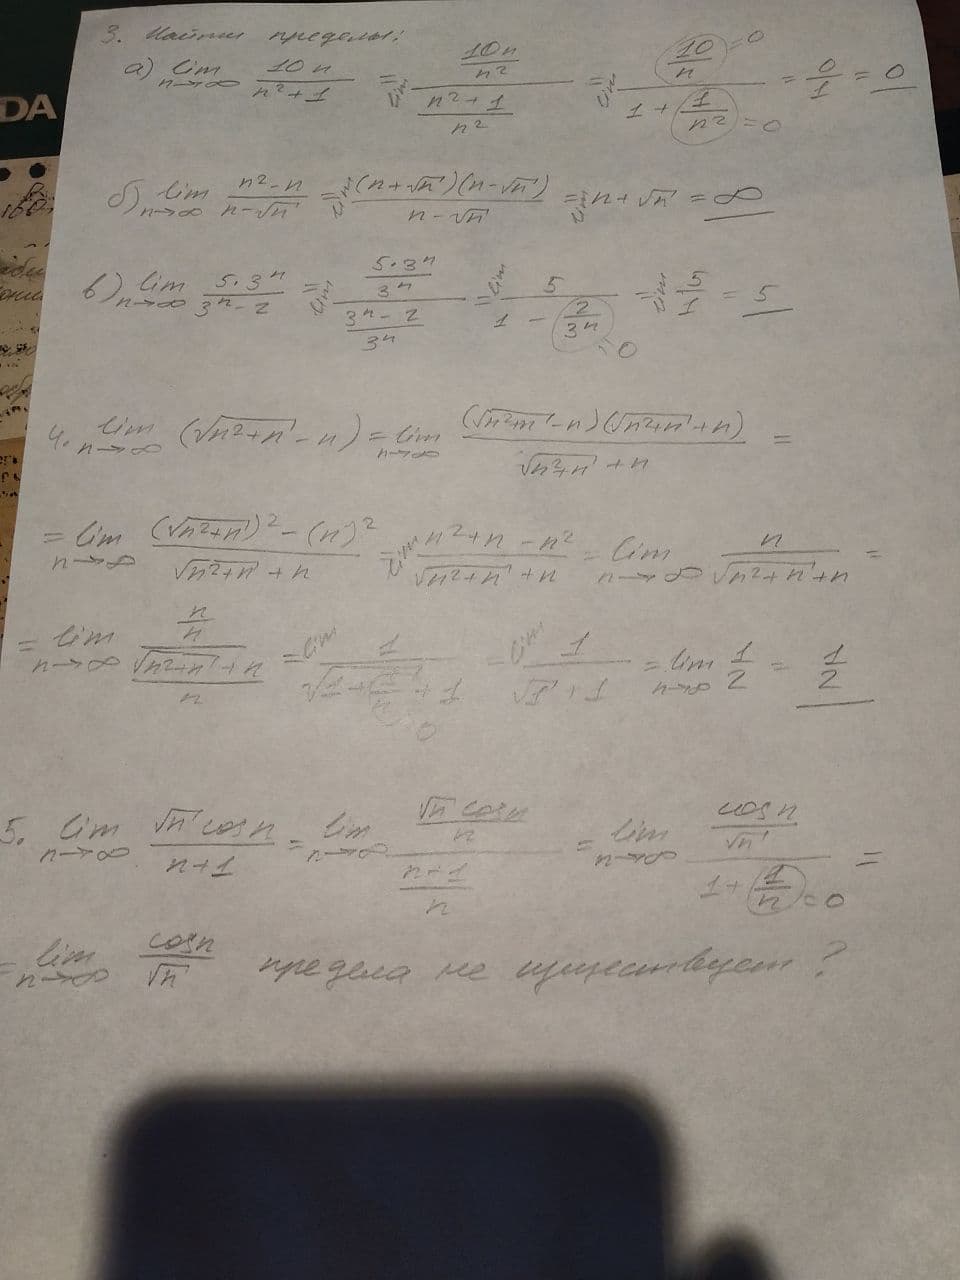 DA
3. Найти пределы:
а) lim n→∞ 10n/(n²+1) = lim (10n/n²)/((n²+1)/n²) = lim (10/n)/(1 + 1/n²) = 0/1 = 0
=0
=0
б) lim n→∞ (n²-n)/(n-√n) = lim (n+√n)(n-√n)/(n-√n) = lim n+√n = ∞
в) lim n→∞ 5·3ⁿ/(3ⁿ-2) = lim (5·3ⁿ/3ⁿ)/((3ⁿ-2)/3ⁿ) = lim 5/(1 - 2/3ⁿ) = lim 5/1 = 5
=0
4. lim n→∞ (√(n²+n) - n) = lim n→∞ (√(n²+n) - n)(√(n²+n) + n)/(√(n²+n) + n) =
= lim n→∞ ((√(n²+n))² - (n)²)/(√(n²+n) + n) = lim (n²+n-n²)/(√(n²+n) + n) = lim n→∞ n/(√(n²+n) + n) =
= lim n→∞ (n/n)/((√(n²+n) + n)/n) = lim 1/(√(1+n/n) + 1) = lim 1/(√1 + 1) = lim n→∞ 1/2 = 1/2
0
5. lim n→∞ √n cosn/(n+1) = lim n→∞ (√n cosn/n)/((n+1)/n) = lim n→∞ (cosn/√n)/(1 + 1/n) =
=0
= lim n→∞ cosn/√n предела не существует?